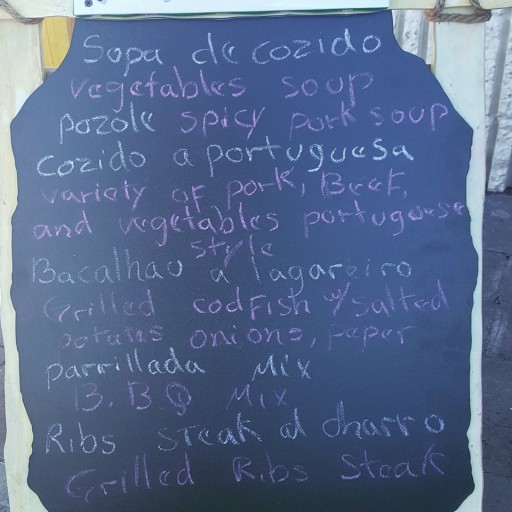 Sopa de cozido
vegetables soup
pozole spicy pork soup
cozido a portuguesa
variety of pork, Beef,
and vegetables portuguese
style
Bacalhao a lagareiro
Grilled codfish w/ salted
potates onions, peper
parrillada Mix
B.BQ Mix
Ribs steak al charro
Grilled Ribs Steak